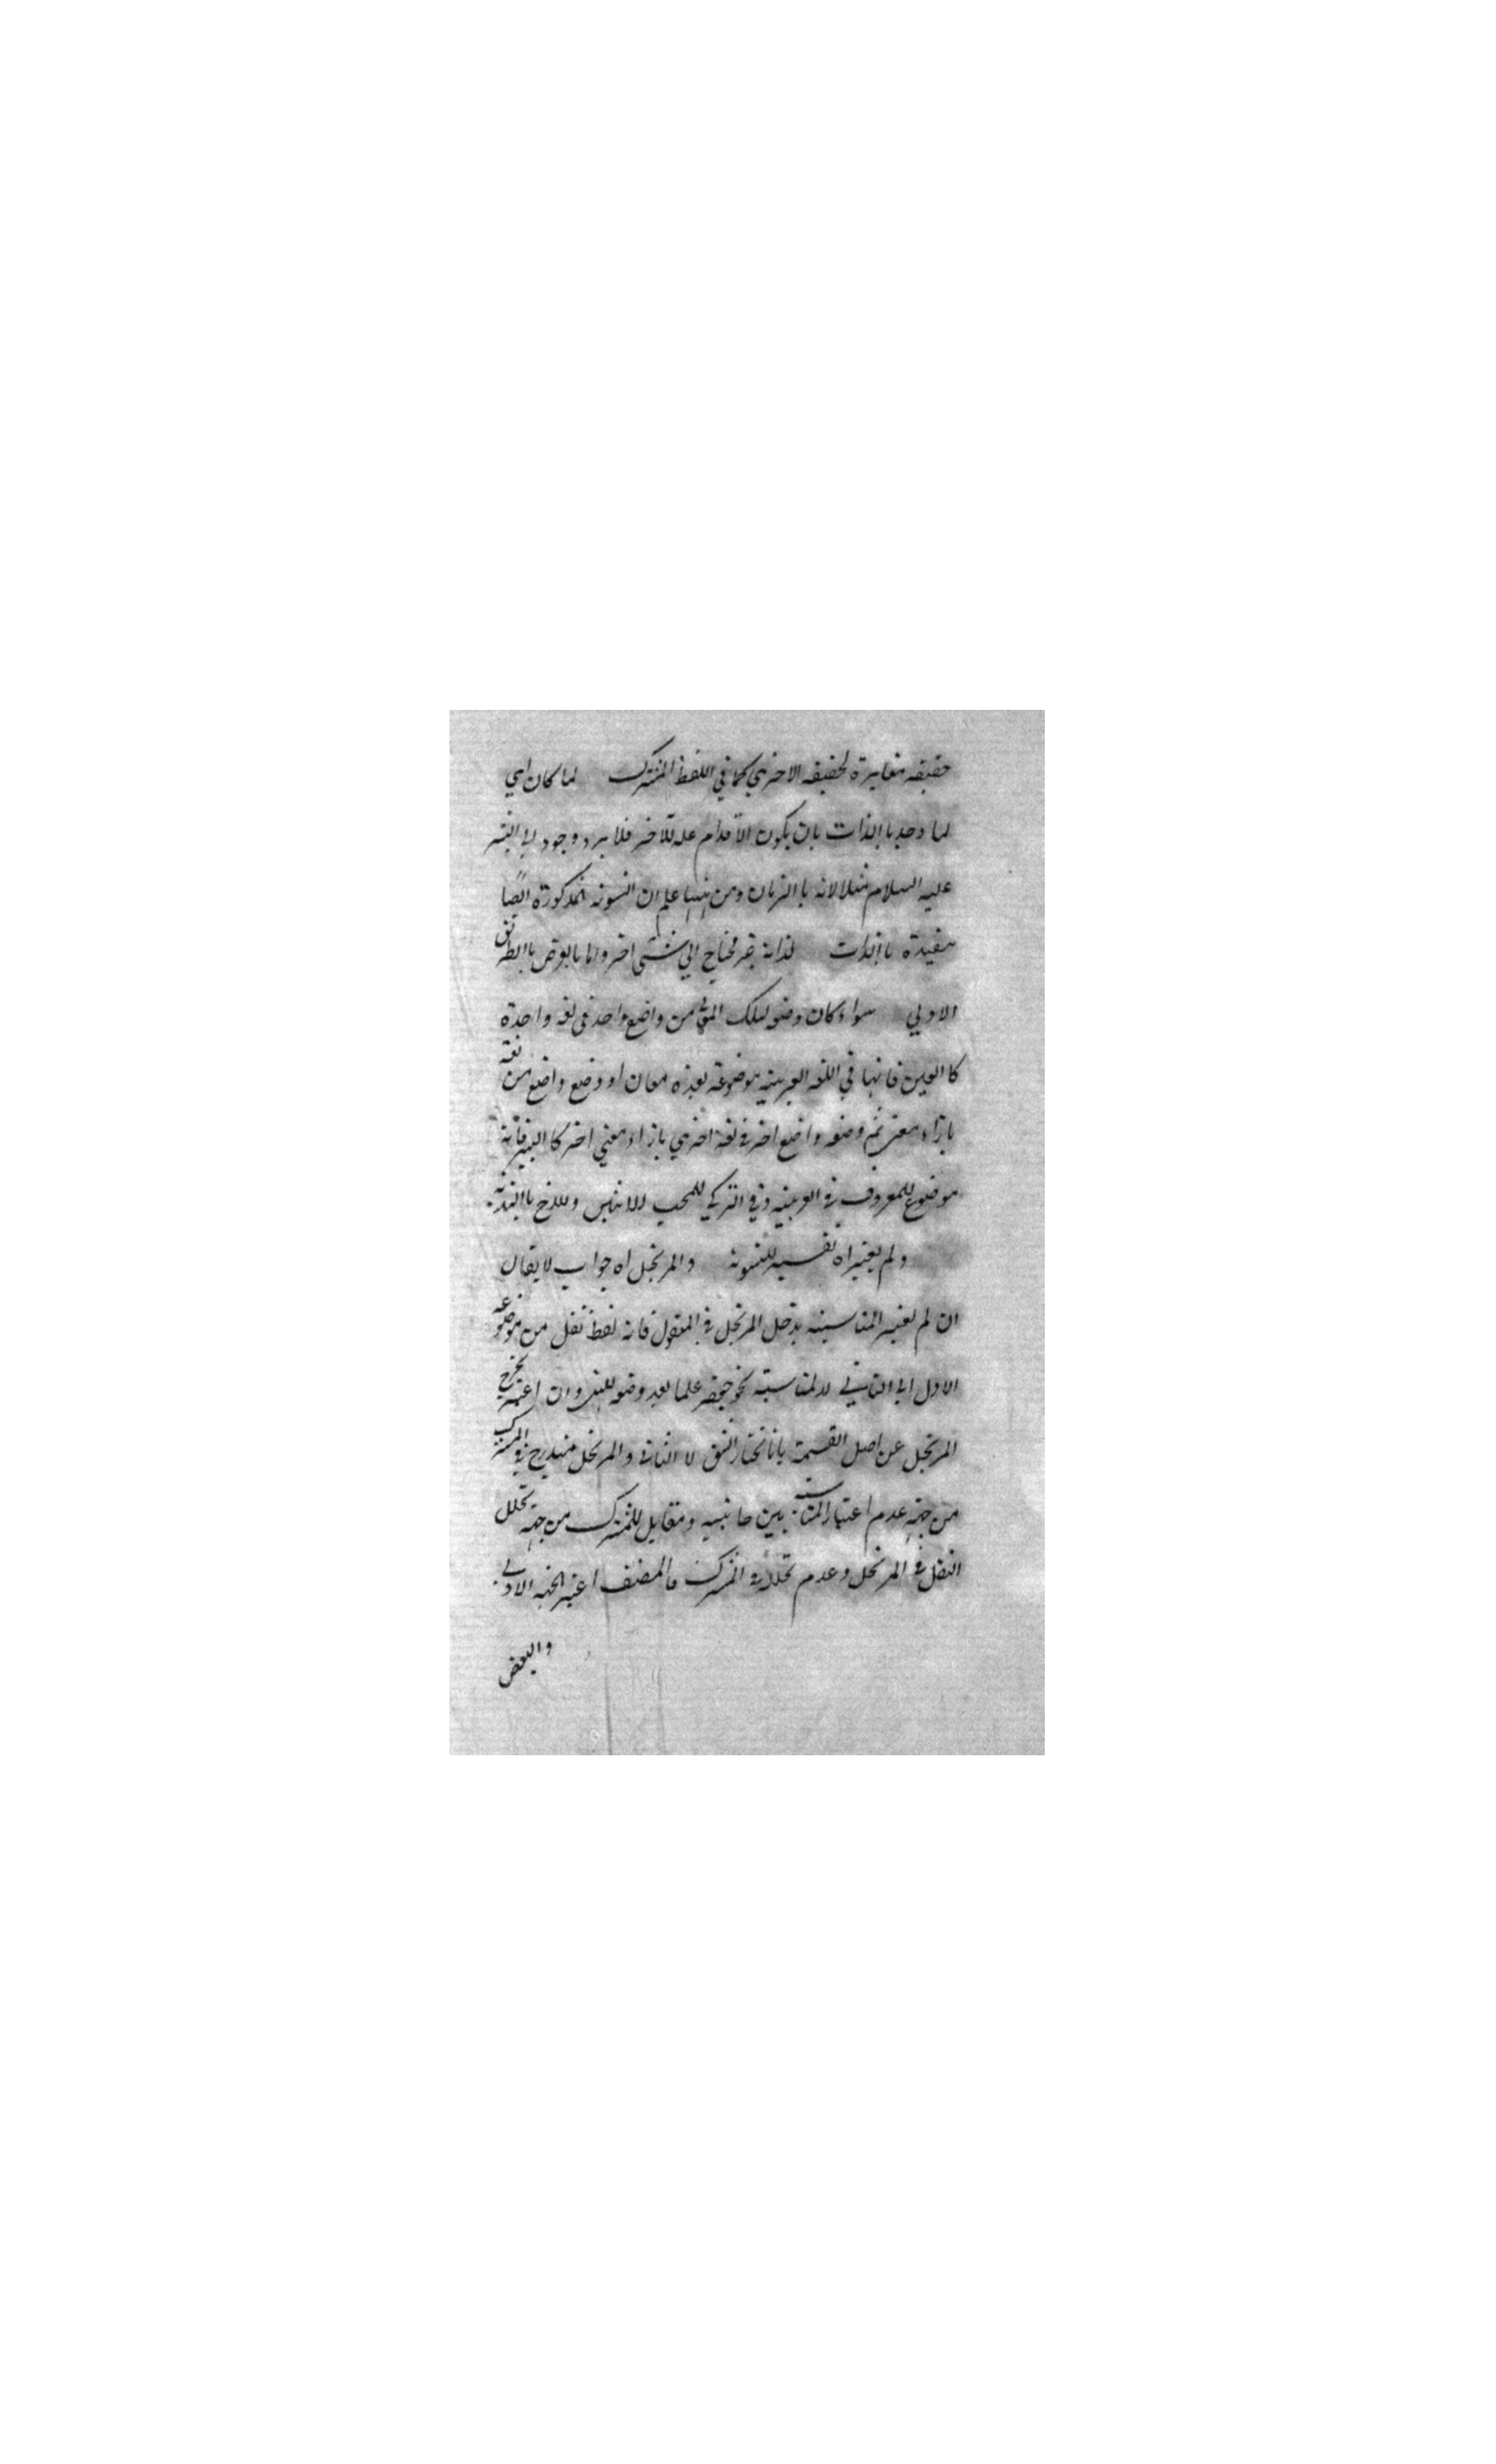 حقيقه مغايرة لحقيقه الاخري كما في اللفظ المشترك لما كان اي
لما وجد با الذات بان يكون الاقدام علة للآخر فلا يرد وجود ابي البشر
عليه السلام مثلا لانه با الزمان ومن ههنا علم ان النسوته المذكورة ايضا
مقيدة با الذات لذاته غير محتاج الي شئ اخر واما بابوض با الطريق
الاولي سواء كان وضعه لتلك المعاني من واضع واحد في لغه واحدة
كا العين فانها في اللغه العربيه موضوعه لعدة معان او وضع واضع من لغة
بازاء معني ثم وضعه واضع اخر في لغة اخري بازاء معني اخر كا البئر فانه
موضوع للمعروف في العربيه وفي التركي للمحب للانثيين وللاخ با الهنديه
ولم يعتبر اه تفسير للنسوته والمرتجل اه جواب لا يقال
ان لم يعتبر المناسبه يدخل المرتجل في المنقول فانه لفظ نقل من موضوعه
الاول الي الثاني لا لمناسبة نحو جعفر علما بعد وضعه للنهر وان اعتبر يخرج
المرتجل عن اصل القسمة بانا نختار الشق لا الثاني والمرتجل مندرج في المشترك
من جهة عدم اعتبار المناسبة بين جانبيه ومقابل للمشترك من جهة تخلل
النقل في المرتجل وعدم تخلله في المشترك فالمصنف اعتبر الجهة الاولي
والبعض